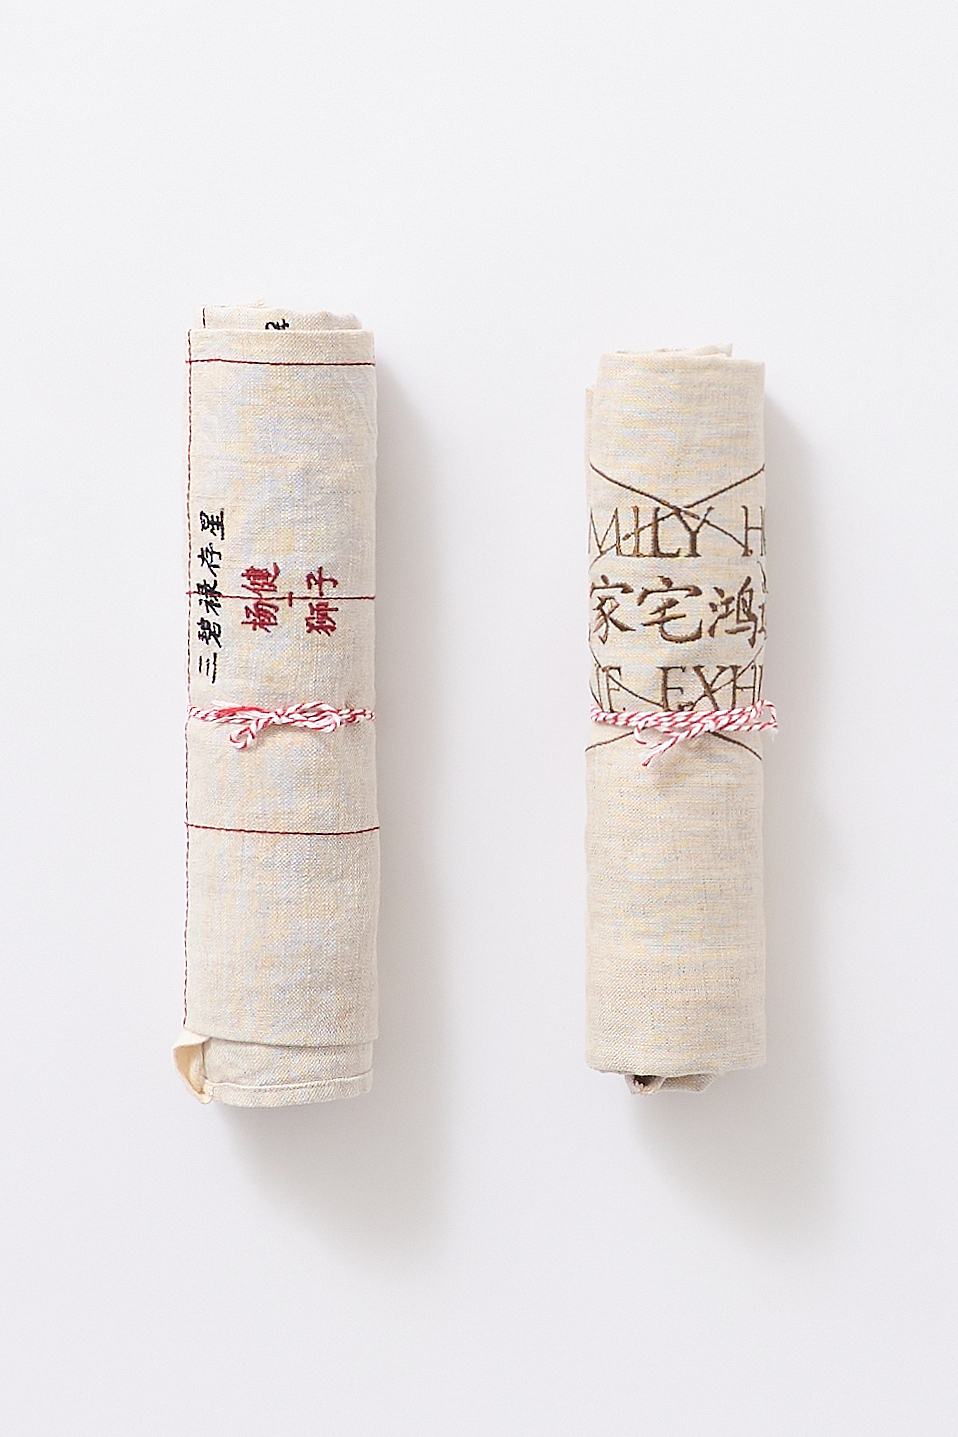 三碧禄存星
杨健
狮子
MILY H
家宅鸿
NE EXHI